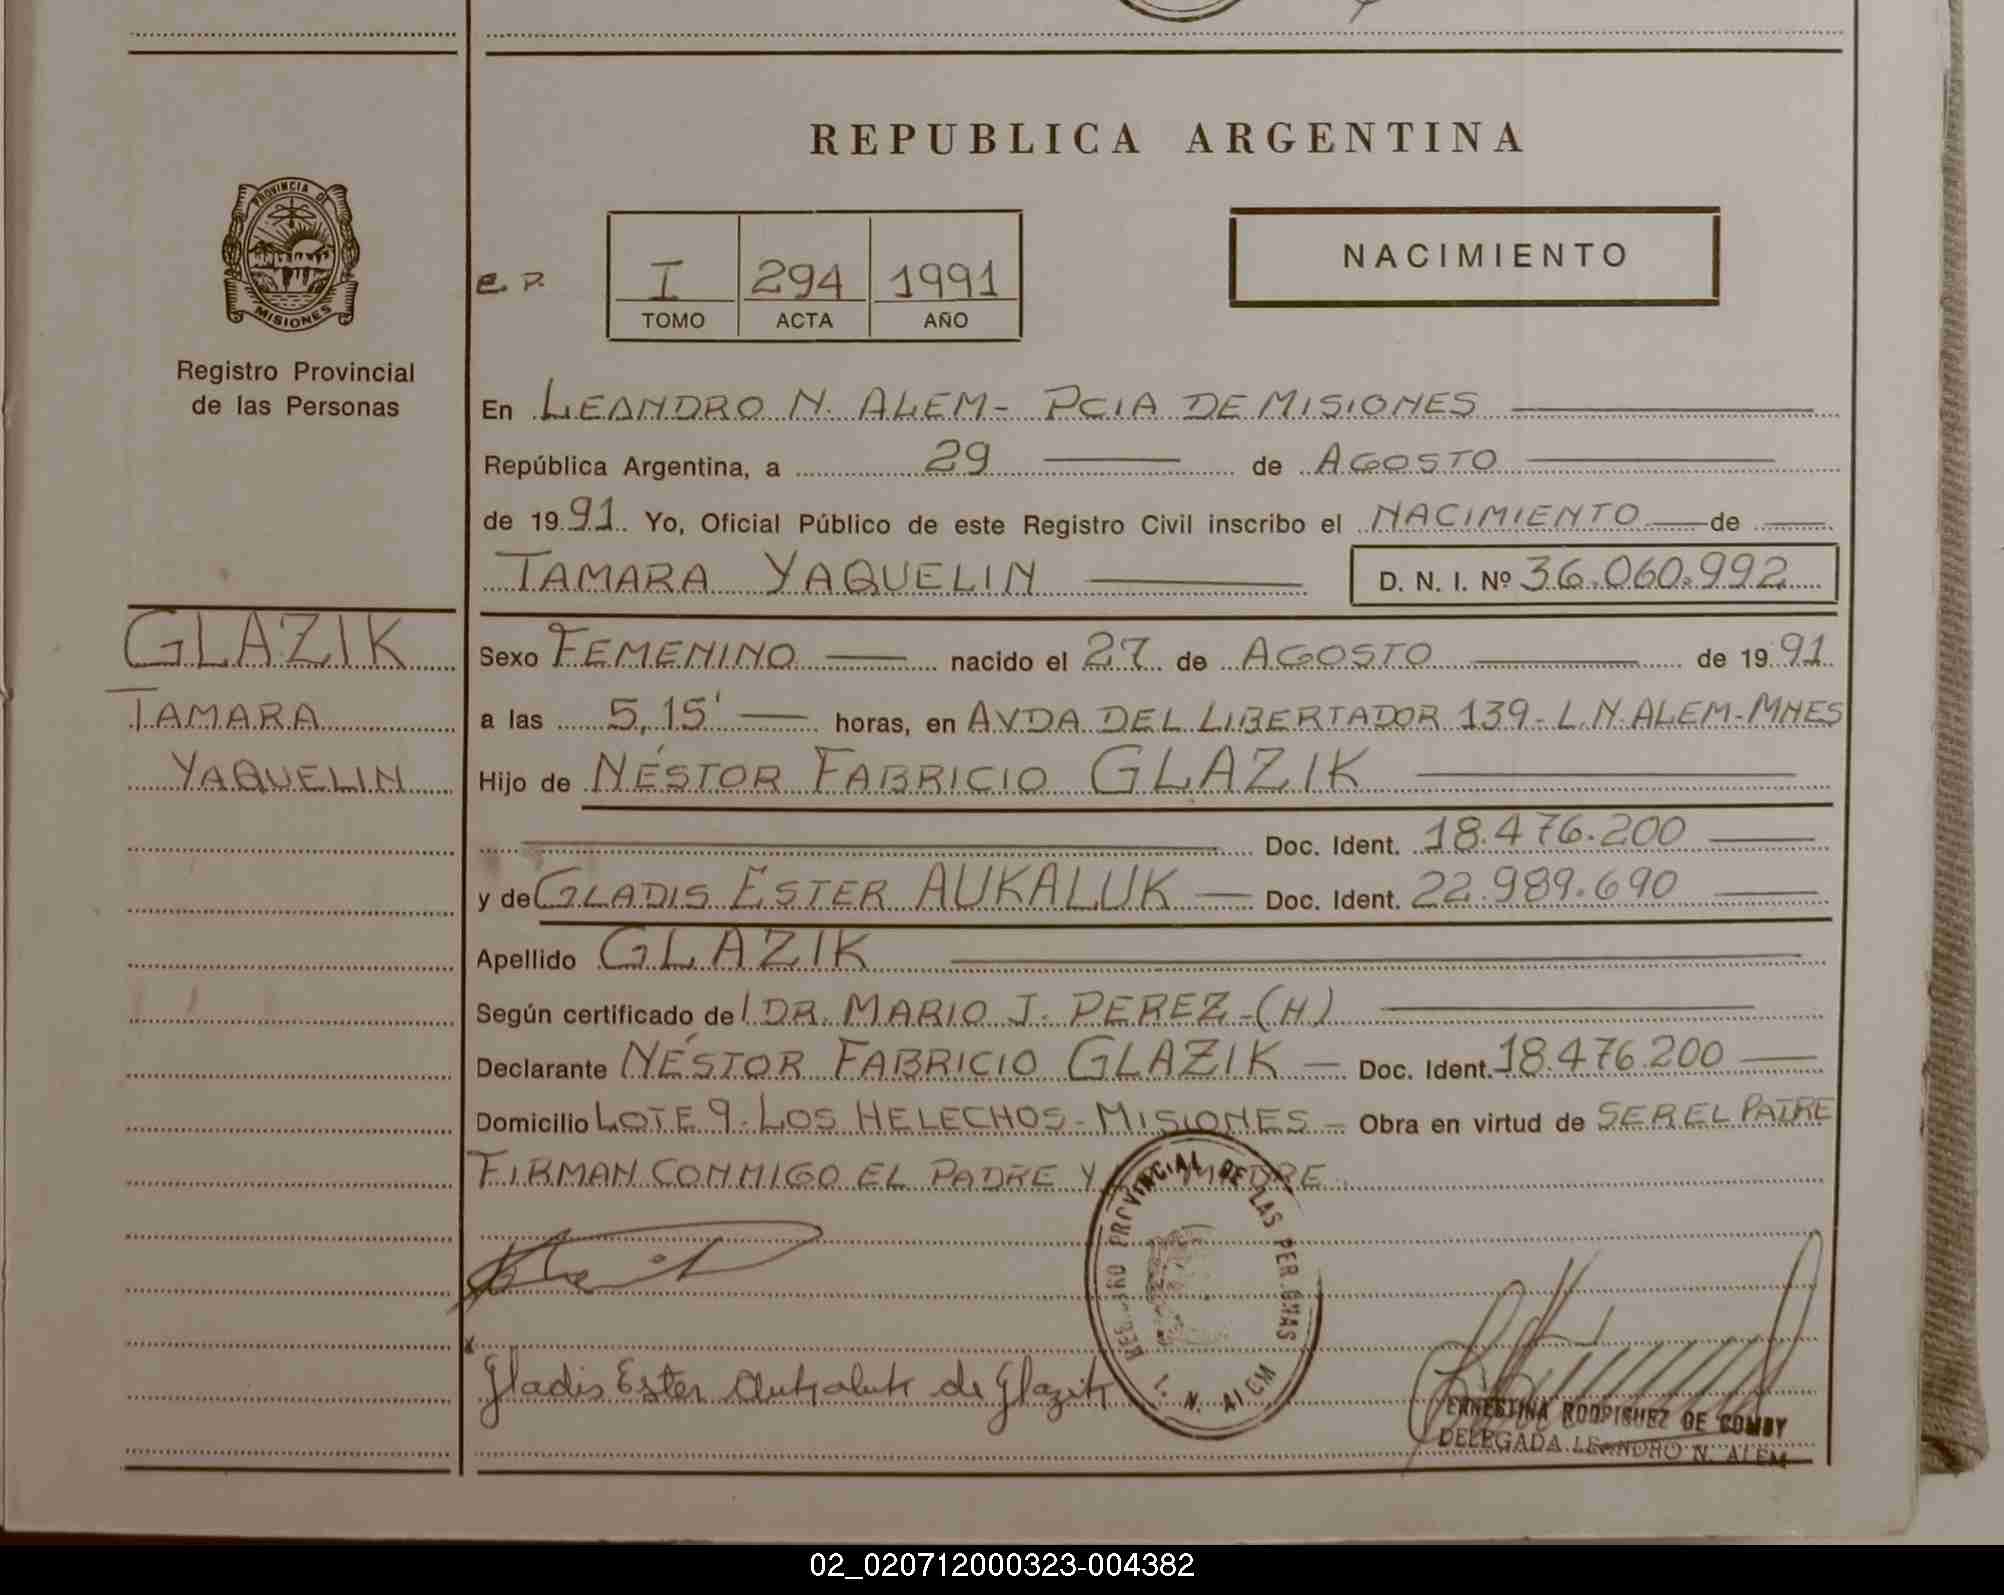 REPUBLICA ARGENTINA
PROVINCIA DE
MISIONES
Registro Provincial
de las Personas
e.p.
I 294 1991
TOMO ACTA AÑO
NACIMIENTO
En LEANDRO N. ALEM - PCIA DE MISIONES
República Argentina, a 29 de AGOSTO
de 1991. Yo, Oficial Público de este Registro Civil inscribo el NACIMIENTO de
TAMARA YAQUELIN D. N. I. Nº 36.060.992
GLAZIK
TAMARA
YAQUELIN
Sexo FEMENINO nacido el 27 de AGOSTO de 1991
a las 5,15' horas, en AVDA DEL LIBERTADOR 139 - L.N. ALEM - MNES
Hijo de NÉSTOR FABRICIO GLAZIK
Doc. Ident. 18.476.200
y de GLADIS ESTER AUKALUK Doc. Ident. 22.989.690
Apellido GLAZIK
Según certificado del DR. MARIO J. PEREZ - (H)
Declarante NÉSTOR FABRICIO GLAZIK Doc. Ident. 18.476.200
Domicilio LOTE 9 - LOS HELECHOS - MISIONES Obra en virtud de SER EL PATRE
FIRMAN CONMIGO EL PADRE Y MADRE
REGISTRO PROVINCIAL DE LAS PERSONAS
L. N. ALEM
x
Gladis Ester Aukaluk de Glazik
ERNESTINA RODRIGUEZ DE COMBY
DELEGADA LEANDRO N. ALEM
02_020712000323-004382